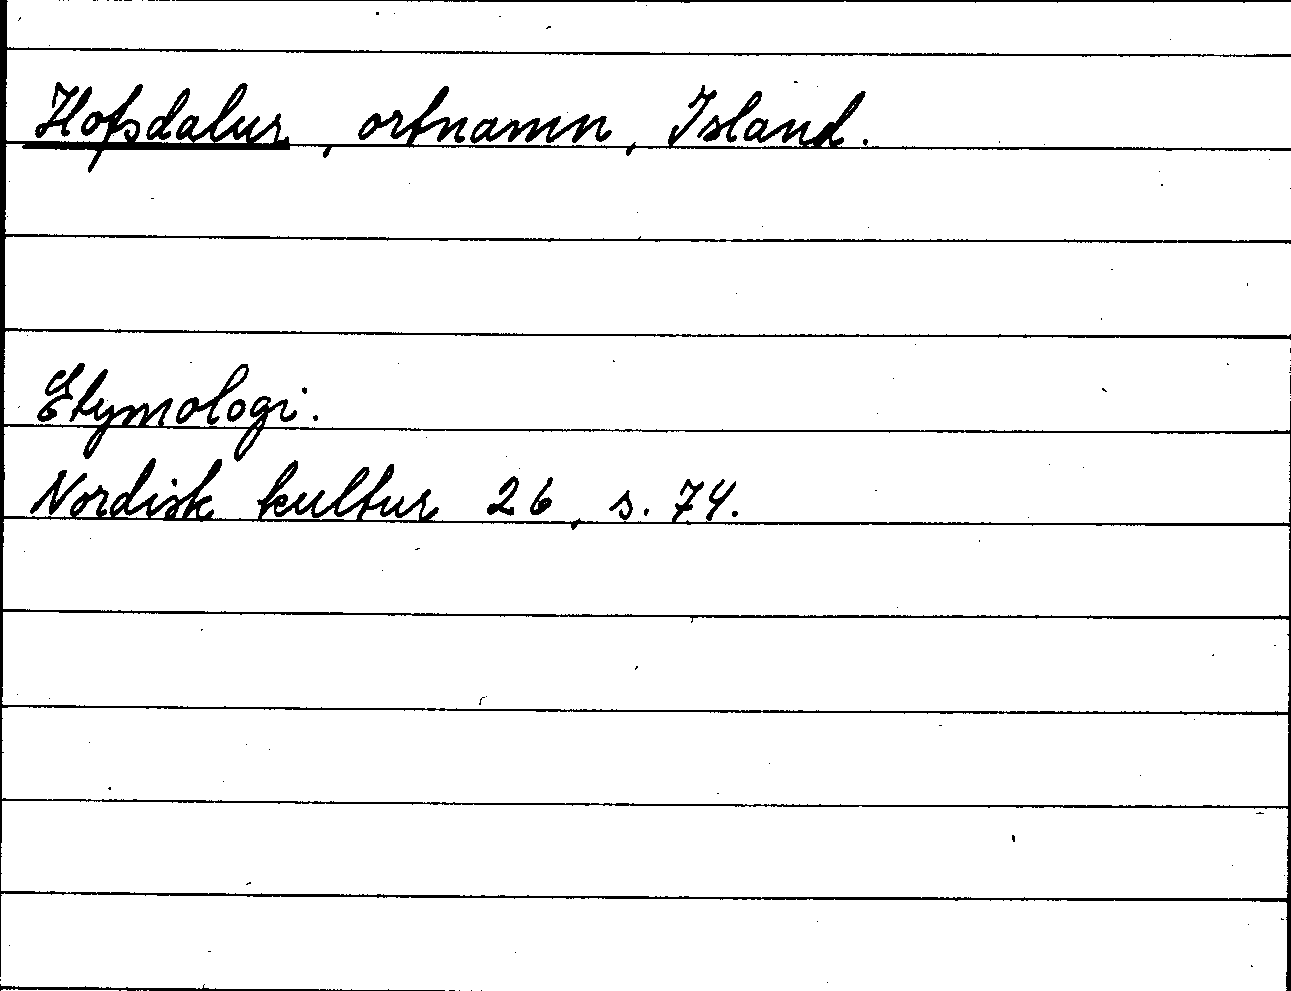 Hofsdalur, ortnamn, Island.
Etymologi.
Nordisk kultur 26, s. 74.